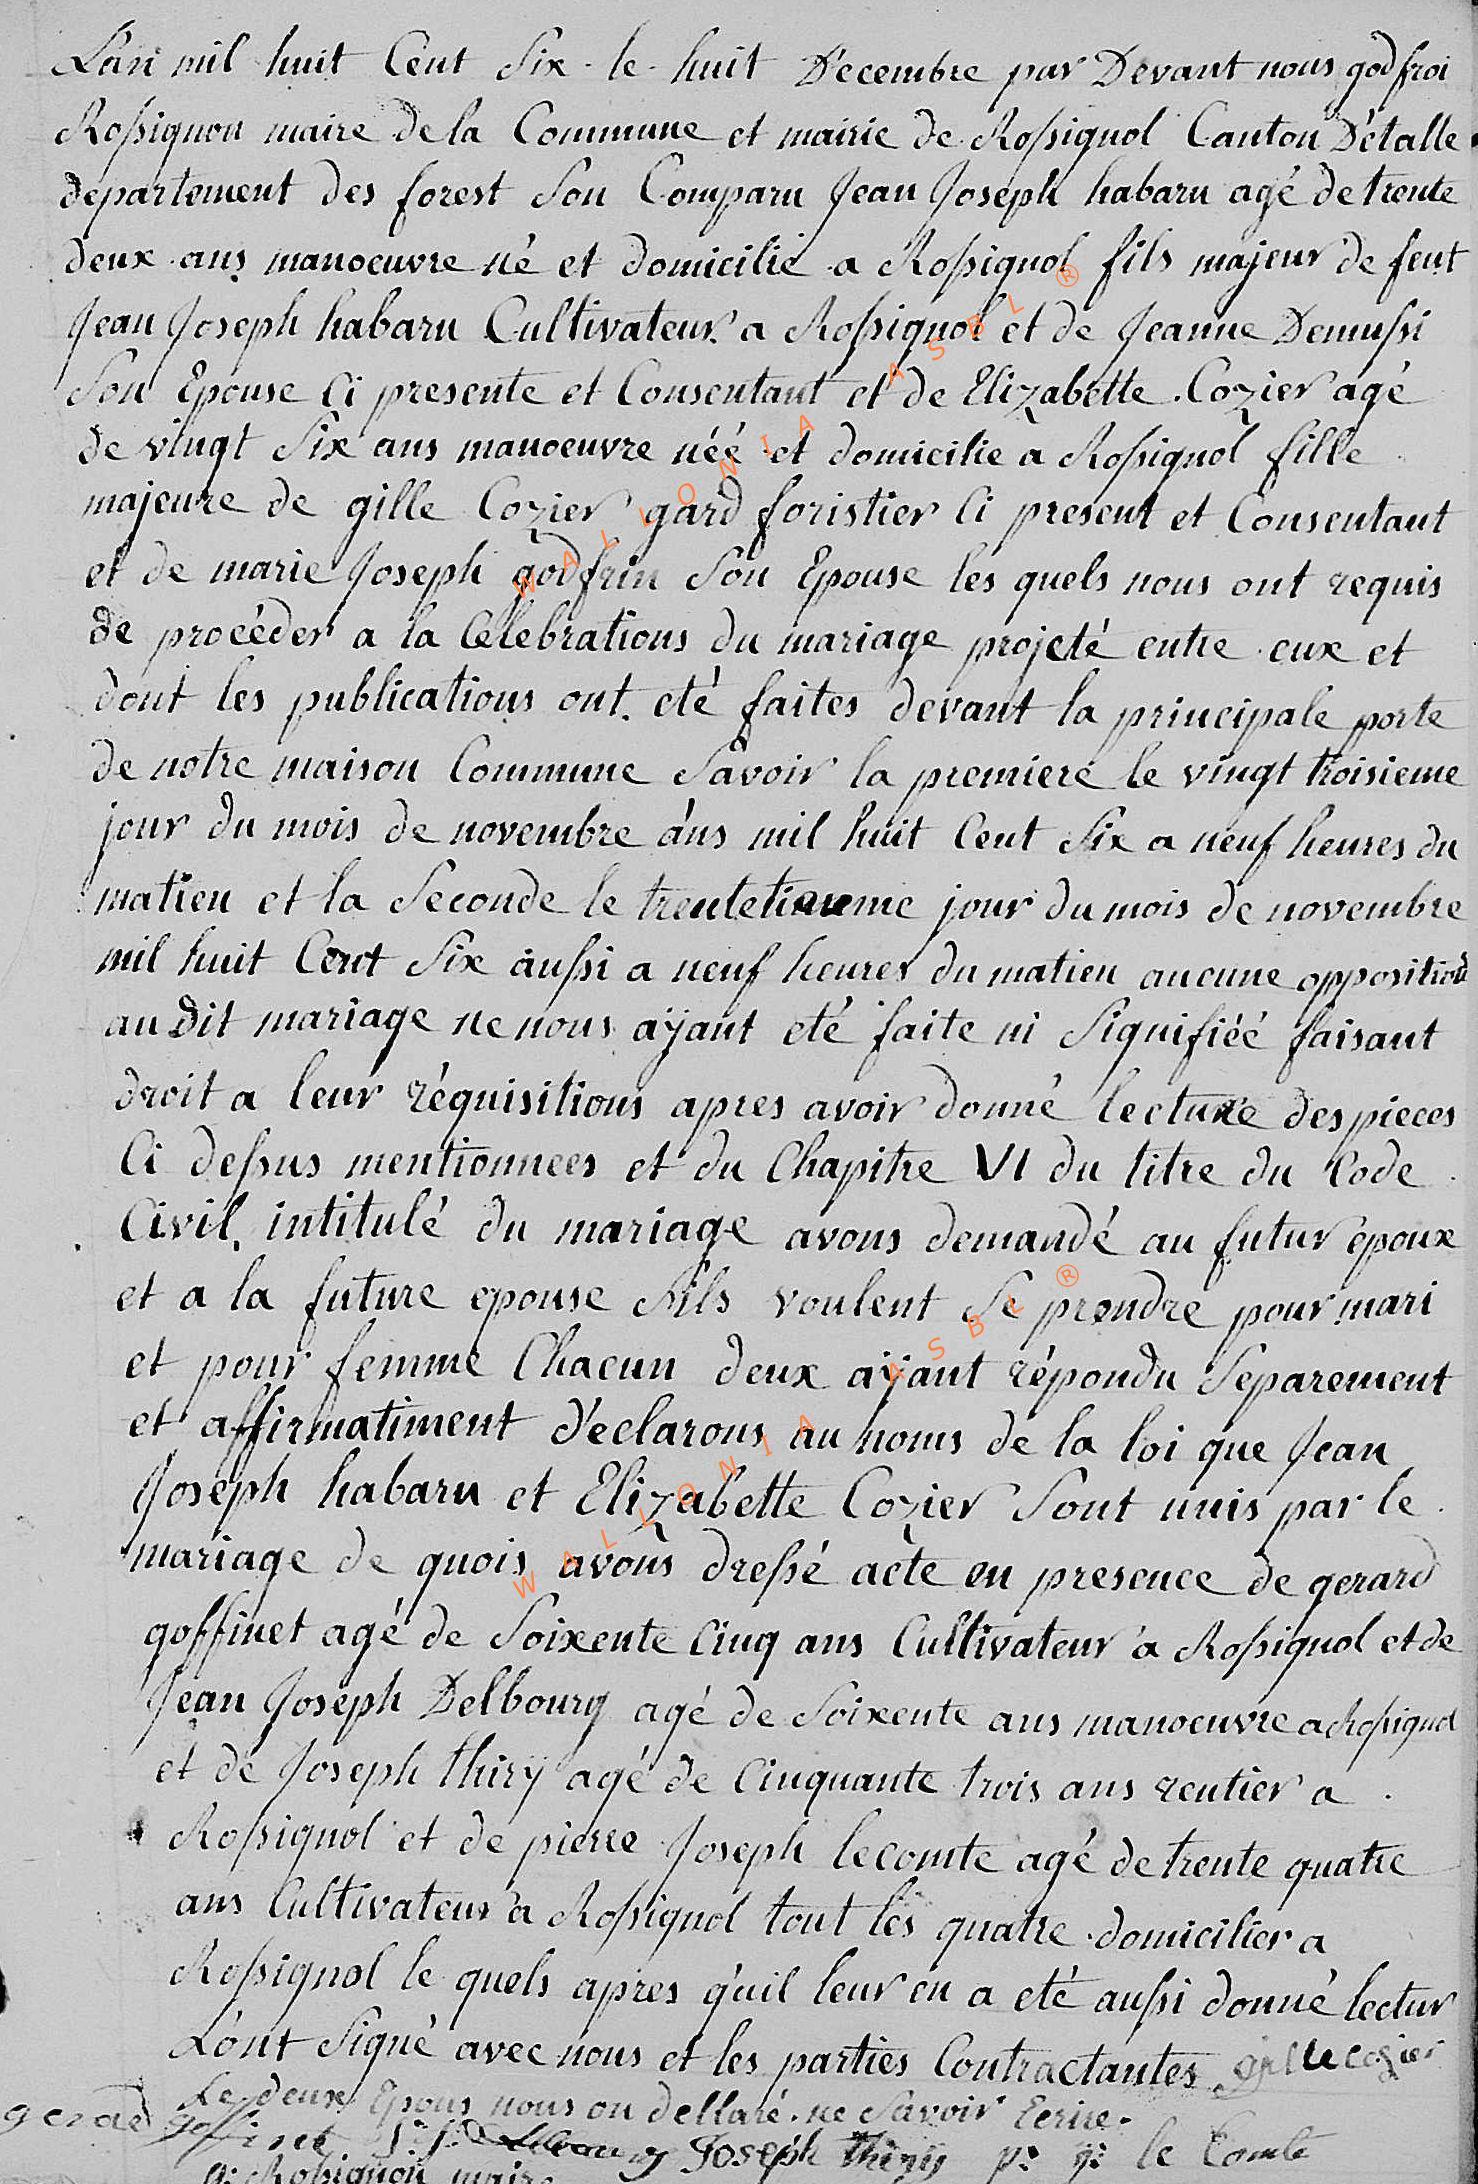 L'an mil huit Cent Six le huit Décembre par Devant nous godfroi
Rossignon maire de la Commune et mairie de Rossignol Canton D'étalle
departement des forest Son Comparu Jean Joseph habaru agé de trente
deux ans manoeuvre né et domicilié a Rossignol fils majeur de feut
Jean Joseph habaru Cultivateur a Rossignol et de Jeanne Demussi
Son Epouse Ci presente et Consentant et de Elizabette Cozier agé
de vingt Six ans manoeuvre néé et domicilie a Rossignol fille
majeure de gille Cozier gard foristier Ci present et Consentant
et de marie Joseph godfrin Son Epouse les quels nous ont requis
de procéder a la Célebrations du mariage projeté entre eux et
dont les publications ont eté faites devant la principale porte
de notre maison Commune Savoir la premiere le vingt troisieme
jour du mois de novembre ans mil huit Cent Six a neuf heures du
matien et la Seconde le jour du mois de novembre
mil huit Cent Six aussi a neuf heures du matien aucune opposition
au dit mariage ne nous aÿant eté faite ni Signifiéé faisant
droit a leur réquisitions apres avoir donné lecture des pieces
Ci dessus mentionnees et du Chapitre VI du titre du Code
Civil intitulé du mariage avons demandé au futur epoux
et a la future epouse Sils voulent Se prendre pour mari
et pour femme Chacun deux aÿant répondu Séparement
et affirmatiment déclarons au noms de la loi que Jean
Joseph habaru et Elizabette Cozier Sont unis par le
mariage de quois avons dressé acte en presence de gerard
goffinet agé de Soixente Cinq ans Cultivateur a Rossignol et de
Jean Joseph Delbourg agé de Soixente ans manoeuvre a Rossignol
et de Joseph thirÿ agé de Cinquante trois ans rentier a
Rossignol et de pierre Joseph lecomte agé de trente quatre
ans Cultivateur a Rossignol tout les quatre domicilier a
Rossignol le quels apres q'uil leur en a eté aussi donné lectur
L'ont Signé avec nous et les parties Contractantes gille cozier
Le deux Epous nous on dellaré ne Savoir Ecrire
gerard goffinet J: J: Delbourg Joseph thiry p: j: le Comte
g: Rossignon maire
WALLONIA ASBL ®
WALLONIA ASBL ®